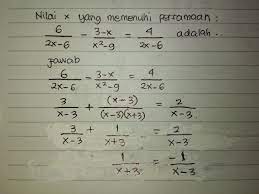 Nilai x yang memenuhi persamaan :
6/(2x-6) - (3-x)/(x²-9) = 4/(2x-6) adalah..
jawab
6/(2x-6) - (3-x)/(x²-9) = 4/(2x-6)
3/(x-3) + (x-3)/((x-3)(x+3)) = 2/(x-3)
3/(x-3) + 1/(x+3) = 2/(x-3)
1/(x+3) = -1/(x-3)